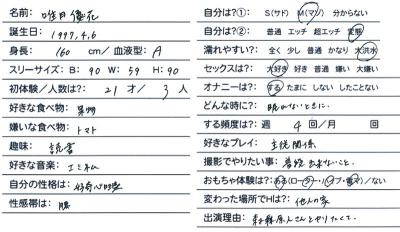 名前: 唯月優花
誕生日: 1997.4.6
身長: 160 cm/血液型: A
スリーサイズ: B: 90 W: 59 H: 90
初体験/人数は?: 21 才/ 3 人
好きな食べ物: 果物
嫌いな食べ物: トマト
趣味: 読書
好きな音楽: エミネム
自分の性格は: 好奇心旺盛
性感帯は:
自分は?①: S(サド) M(マゾ) 分からない
自分は?②: 普通 エッチ 超エッチ 変態
濡れやすい?: 全く 少し 普通 かなり 大洪水
セックスは?: 大好き 好き 普通 嫌い 大嫌い
オナニーは?: する たまに しない したことない
どんな時に?: 眠れないときに.
する頻度は?: 週 4 回/月 回
好きなプレイ: 主従関係
撮影でやりたい事: 普段出来ないこと.
おもちゃ体験は?: ある(ロータ・バイブ・電マ)/ない
変わった場所でHは?: 他人の家
出演理由: 森林原人さんとやりたくて.